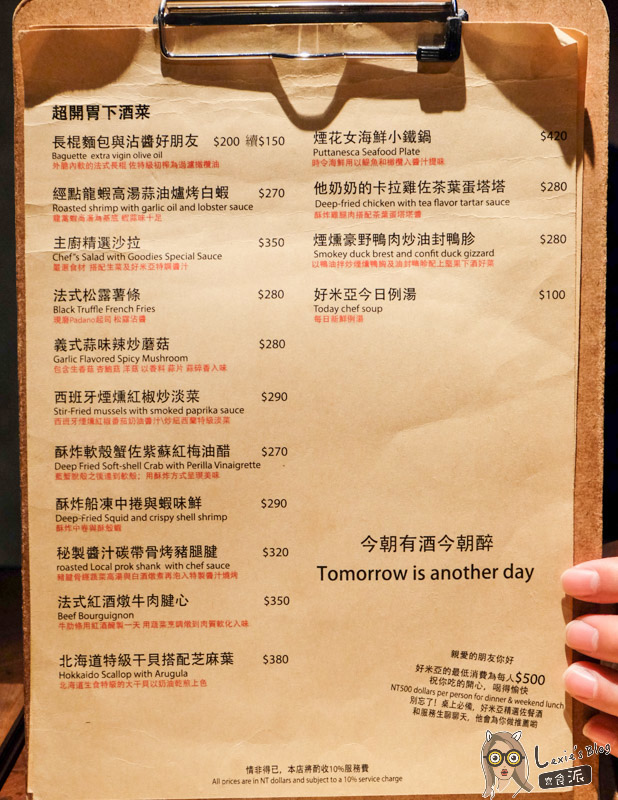 超開胃下酒菜
長棍麵包與沾醬好朋友 $200 續$150
Baguette extra vigin olive oil
外脆內軟的法式長棍 佐特級初榨為過濾橄欖油
經點龍蝦高湯蒜油爐烤白蝦 $270
Roasted shrimp with garlic oil and lobster sauce
主廚精選沙拉 $350
Chef"s Salad with Goodies Special Sauce
嚴選食材 搭配生菜及好米亞特調醬汁
法式松露薯條 $280
Black Truffle French Fries
現磨Padano起司 松露沾醬
義式蒜味辣炒蘑菇 $280
Garlic Flavored Spicy Mushroom
包含生香菇 杏鮑菇 洋菇 以香料 蒜片 蒜碎香入味
西班牙煙燻紅椒炒淡菜 $290
Stir-Fried mussels with smoked paprika sauce
西班牙煙燻紅椒番茄奶油醬汁\炒紐西蘭特級淡菜
酥炸軟殼蟹佐紫蘇紅梅油醋 $270
Deep Fried Soft-shell Crab with Perilla Vinaigrette
藍蟹脫殼之後進到軟殼，用酥炸方式呈現美味
酥炸船凍中捲與蝦味鮮 $290
Deep-Fried Squid and crispy shell shrimp
酥炸中卷與酥殼蝦
秘製醬汁碳帶骨烤豬腿腱 $320
roasted Local prok shank with chef sauce
豬腱骨經蔬菜高湯與白酒燉煮再泡入特製醬汁燒烤
法式紅酒燉牛肉腱心 $350
Beef Bourguignon
牛肋條用紅酒醃製一天 用蔬菜烹調燉到肉質軟化入味
北海道特級干貝搭配芝麻葉 $380
Hokkaido Scallop with Arugula
北海道生食特級的大干貝以奶油乾煎上色
煙花女海鮮小鐵鍋 $420
Puttanesca Seafood Plate
時令海鮮用以鯷魚和橄欖入醬汁提味
他奶奶的卡拉雞佐茶葉蛋塔塔 $280
Deep-fried chicken with tea flavor tartar sauce
酥炸雞腿肉搭配茶葉蛋塔塔醬
煙燻豪野鴨肉炒油封鴨胗 $280
Smokey duck brest and confit duck gizzard
以鴨油拌炒煙燻鴨胸及油封鴨胗配上堅果下酒好菜
好米亞今日例湯 $100
Today chef soup
每日新鮮例湯
今朝有酒今朝醉
Tomorrow is another day
親愛的朋友你好
好米亞的最低消費為每人$500
祝你吃的開心，喝得愉快
NT500 dollars per person for dinner & weekend lunch
別忘了！桌上必備，好米亞精選佐餐酒
和服務生聊聊天，他會為你做推薦喲
情非得已，本店將酌收10%服務費
All prices are in NT dollars and subject to a 10% service charge
Lexie's Blog
食派